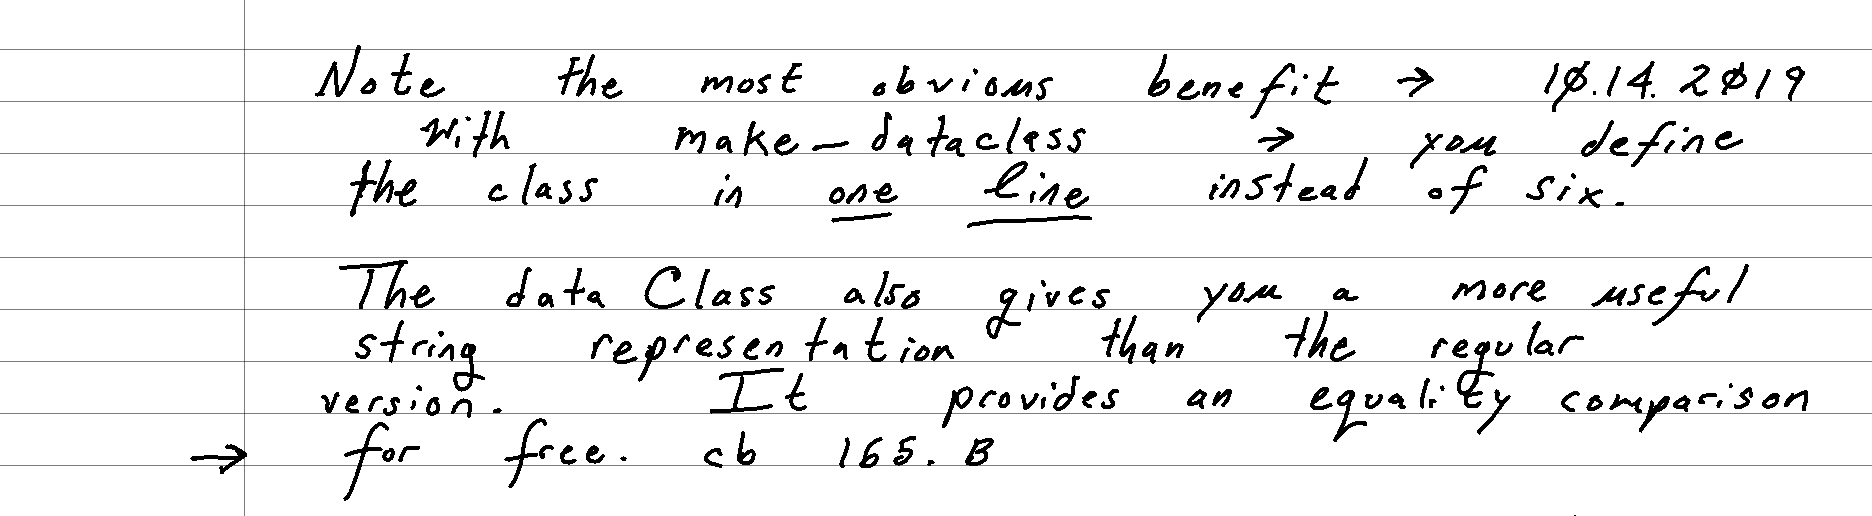 Note the most obvious benefit → 10.14.2019
with make_dataclass → you define
the class in one line instead of six.
The data Class also gives you a more useful
string representation than the regular
version. It provides an equality comparison
→ for free. cb 165.B